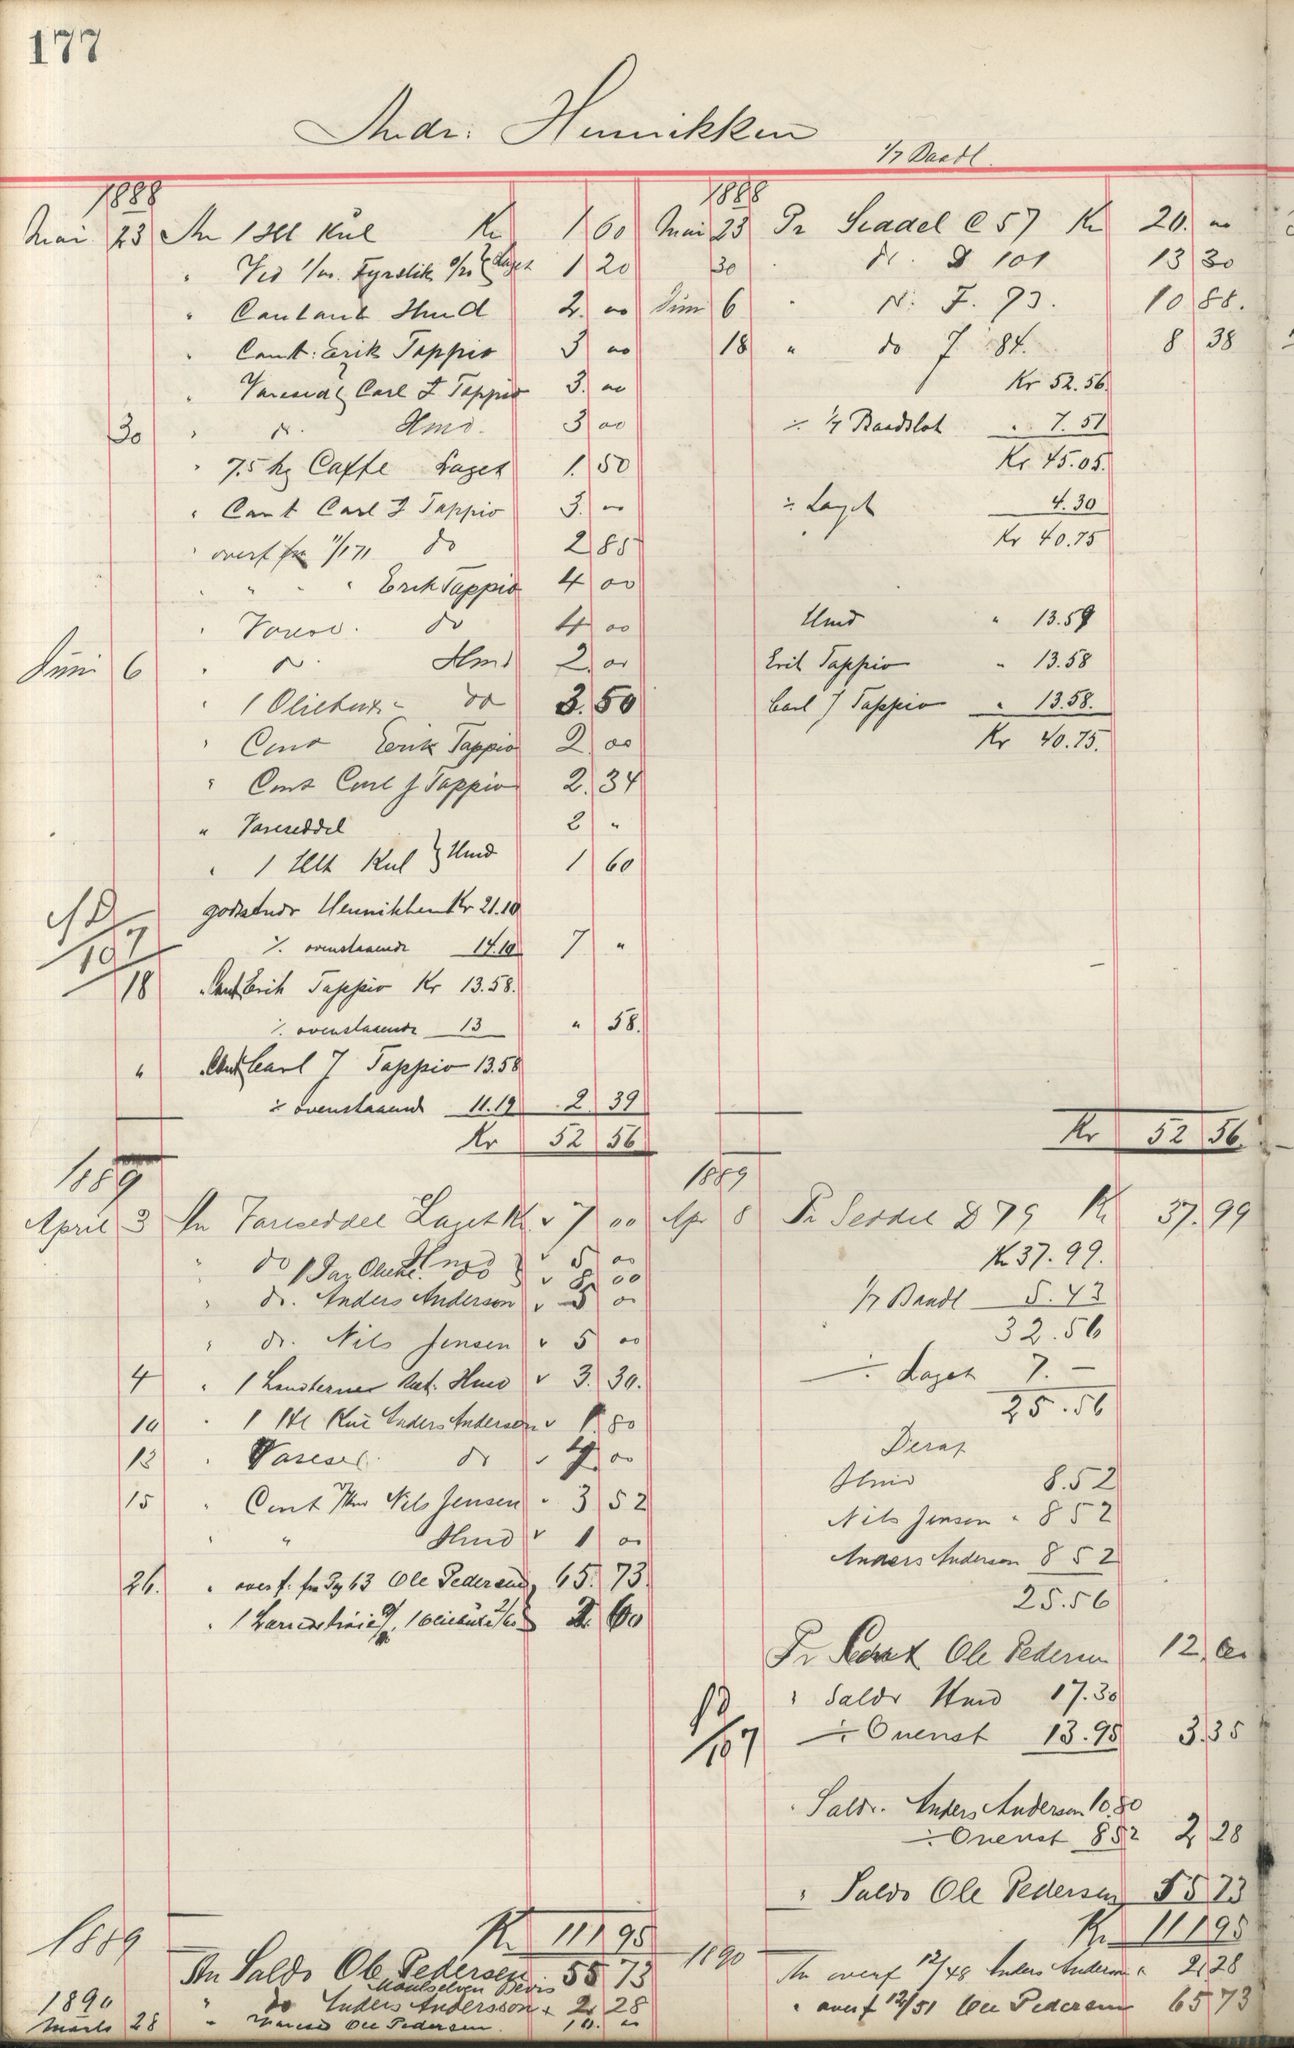 177
Andr: Henrikken
1/7 Baadl.
1888
Mai 23 An 1 Htl Kul Kr 1 60
" Ved 1/m. Fyrstik 0/20 } Laget 1 20
" Contant Hmd 2. 00
" Cont: Erik Tappio 3 00
" Varesed Carl J Tappio 3. 00
30 " do. Hmd. 3 00
" 7.5 kg Caffe Laget 1. 50
" Cont Carl J Tappio 3. 00
" overf fra 11/171 do 2 85
" " " " Erik Tappio 4 00
" Varesd. do 4 00
Juni 6 " do. Hmd 2. 00
" 1 Oliebuxe do 3. 50
" Cont Erik Tappio 2. 00
" Cont Carl J Tappio 2. 34
" Vareseddel 2 "
" 1 Htl Kul } Hmd 1 60
godt Andr Henrikken Kr 21.10
÷ ovenstaaende 14.10 7 "
107
18 " Cont Erik Tappio Kr 13.58.
÷ ovenstaaende 13 " 58.
" " Cont Carl J Tappio 13.58
÷ ovenstaaende 11.19 2. 39
Kr 52 56
1888
Mai 23 Pr Seddel C 57 Kr 20. 00
30 " do. D 101 13 30
Juni 6 " do. F. 93. 10 88.
18 " do J 84. 8 38
Kr 52.56.
÷ 1/7 Baadslot " 7.51
Kr 45.05.
÷ Laget 4.30
Kr 40.75
Hmd " 13.59
Erik Tappio " 13.58
Carl J Tappio " 13.58.
Kr 40.75.
Kr 52 56.
1889
April 3 An Vareseddel Laget Kr. v 7 00
" do Hmd v 5 00
1 Par Oliekl. do } v 8 00
" do. Anders Anderson v 5 00
" do. Nils Jensen v 5 00
4 " 1 Landterne Hmd v 3. 30.
10 " 1 Htl Kul Anders Anderson v 1. 80
13 " Varesed. do v 4. 00
15 " Cont Nils Jensen " 3 52
" " Hmd v 1 00
26. " overf. fra Pg 63 Ole Pedersen, 65. 73.
2. 60
Kr 111 95
1889
Apr 8 Pr Seddel D 79 Kr 37. 99
Kr 37.99.
1/7 Baadl 5.43
32.56
÷ Laget 7. —
25.56
Deraf
Hmd 8.52
Nils Jensen " 8 52
Anders Anderson 8 52
25.56
Pr Cont Ole Pedersen 12. 00
" Saldo Hmd 17.30
÷ Ovenst 13.95 3. 35
107
" Saldo. Anders Anderson 10.80
÷ Ovenst 8 52 2 28
" Saldo Ole Pedersen 55 73
Kr 111 95
1889
An Saldo Ole Pedersen 55 73
1890
" do Anders Andersson " 2 28
Marts 28 " Varesed Ole Pedersen. 10. 00
1890
An overf 12/48 Anders Anderson " 2 28
" overf 12/51 Ole Pedersen 65 73